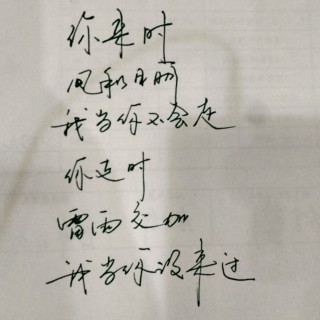 你来时
风和日丽
我当你不会走
你走时
雷雨交加
我当你没来过